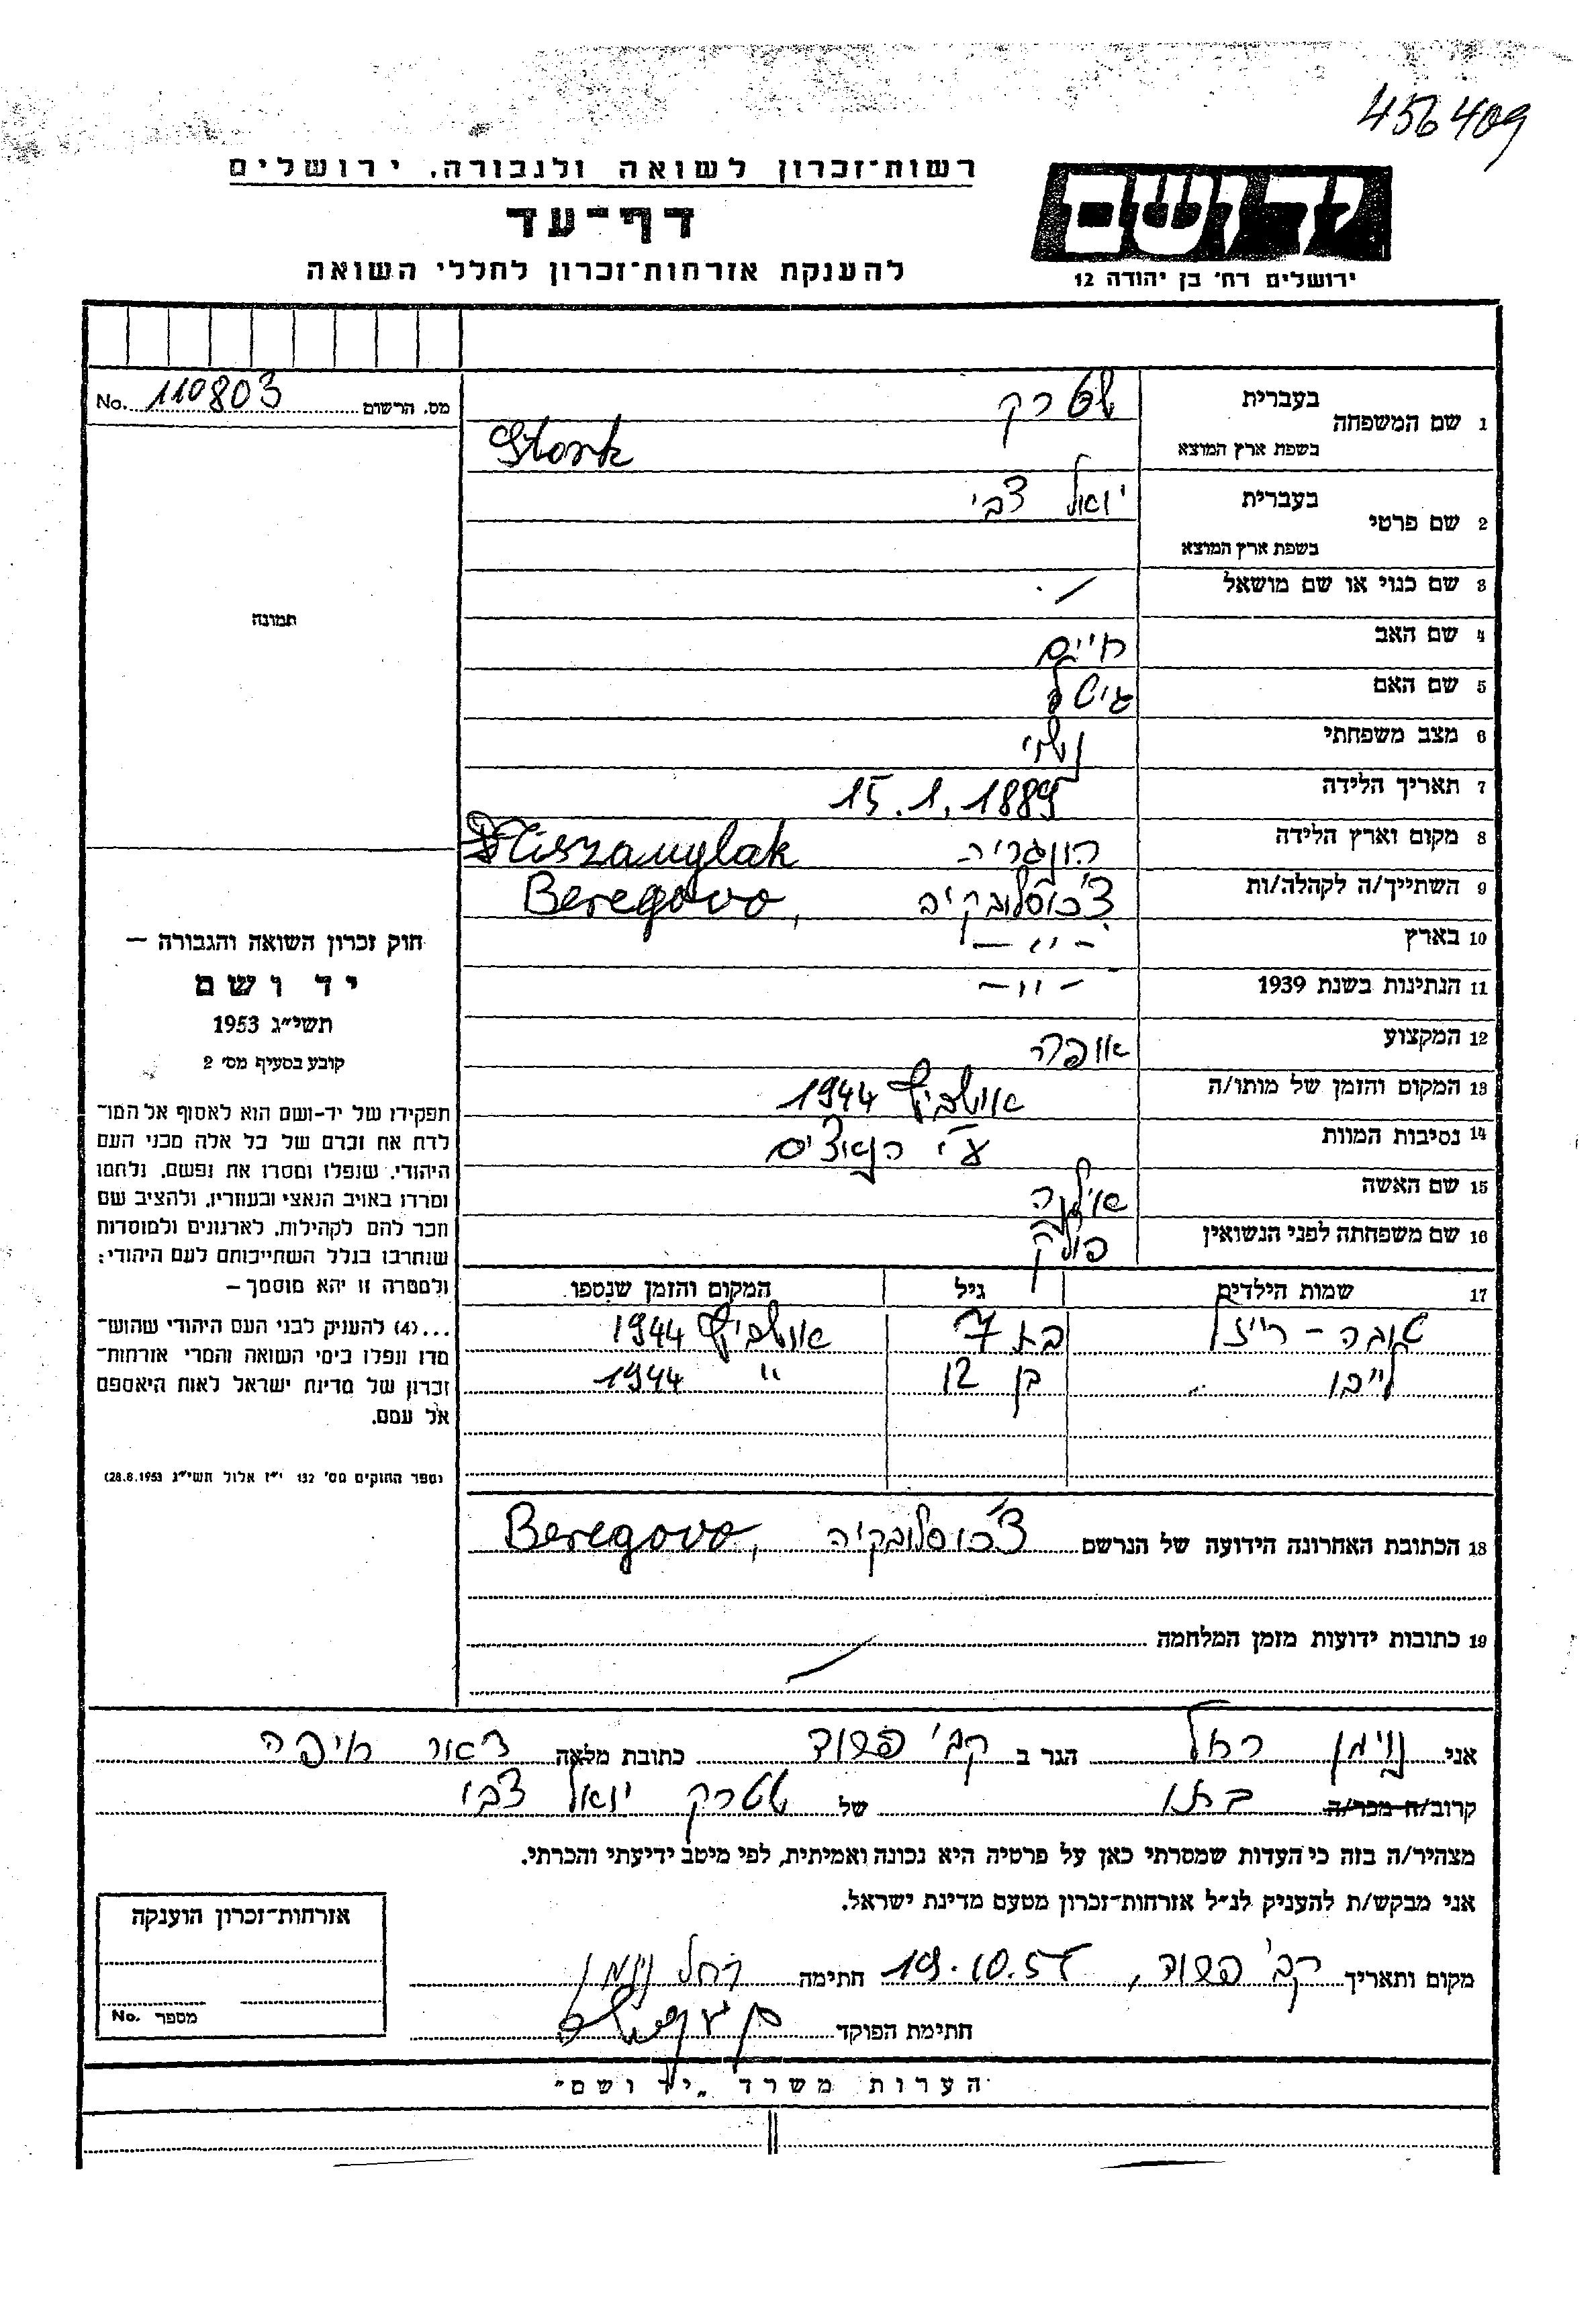 456409
רשות־זכרון לשואה ולגבורה, ירושלים
יד ושם
דף־עד
ירושלים רח׳ בן יהודה 12
להענקת אזרחות־זכרון לחללי השואה
מס. הרשום No. 110803
תמונה
חוק זכרון השואה והגבורה –
יד ושם
תשי״ג 1953
קובע בסעיף מס׳ 2
תפקידו של יד-ושם הוא לאסוף אל המו־
לדת את זכרם של כל אלה מבני העם
היהודי, שנפלו ומסרו את נפשם, נלחמו
ומרדו באויב הנאצי ובעוזריו, ולהציב שם
וזכר להם לקהילות, לארגונים ולמוסדות
שנחרבו בגלל השתייכותם לעם היהודי;
ולמטרה זו יהא מוסמך –
...(4) להעניק לבני העם היהודי שהוש־
מדו ונפלו בימי השואה והמרי אזרחות־
זכרון של מדינת ישראל לאות היאספם
אל עמם.
(ספר החוקים מס׳ 132 י״ז אלול תשי״ג 28.8.1953)
1 שם המשפחה בעברית שטרק
בשפת ארץ המוצא Stork
2 שם פרטי בעברית יואל צבי
בשפת ארץ המוצא
3 שם כנוי או שם מושאל
4 שם האב חיים
5 שם האם
6 מצב משפחתי נשוי
7 תאריך הלידה 15.1.1889
8 מקום וארץ הלידה הונגריה
9 השתייך/ה לקהלה/ות צ׳כוסלובקיה, Beregovo
10 בארץ – " –
11 הנתינות בשנת 1939 – " –
12 המקצוע אופה
13 המקום והזמן של מותו/ה אושביץ 1944
14 נסיבות המוות ע״י הנאצים
15 שם האשה אילנה
16 שם משפחתה לפני הנשואין פולק
17 שמות הילדים גיל המקום והזמן שנספו
טובה – רייזל בת 7 אושביץ 1944
לייבו בן 12 " 1944
18 הכתובת האחרונה הידועה של הנרשם צ׳כוסלובקיה, Beregovo
19 כתובות ידועות מזמן המלחמה
אני נוימן רחל הגר ב קב׳ פרוד כתובת מלאה דאר חיפה
קרוב/ה מכר/ה בתו של שטרק יואל צבי
מצהיר/ה בזה כי העדות שמסרתי כאן על פרטיה היא נכונה ואמיתית, לפי מיטב ידיעתי והכרתי.
אני מבקש/ת להעניק לנ״ל אזרחות־זכרון מטעם מדינת ישראל.
מקום ותאריך קב׳ פרוד, 19.10.55 חתימה רחל נוימן
חתימת הפוקד
אזרחות־זכרון הוענקה
מספר No.
הערות משרד „יד ושם"